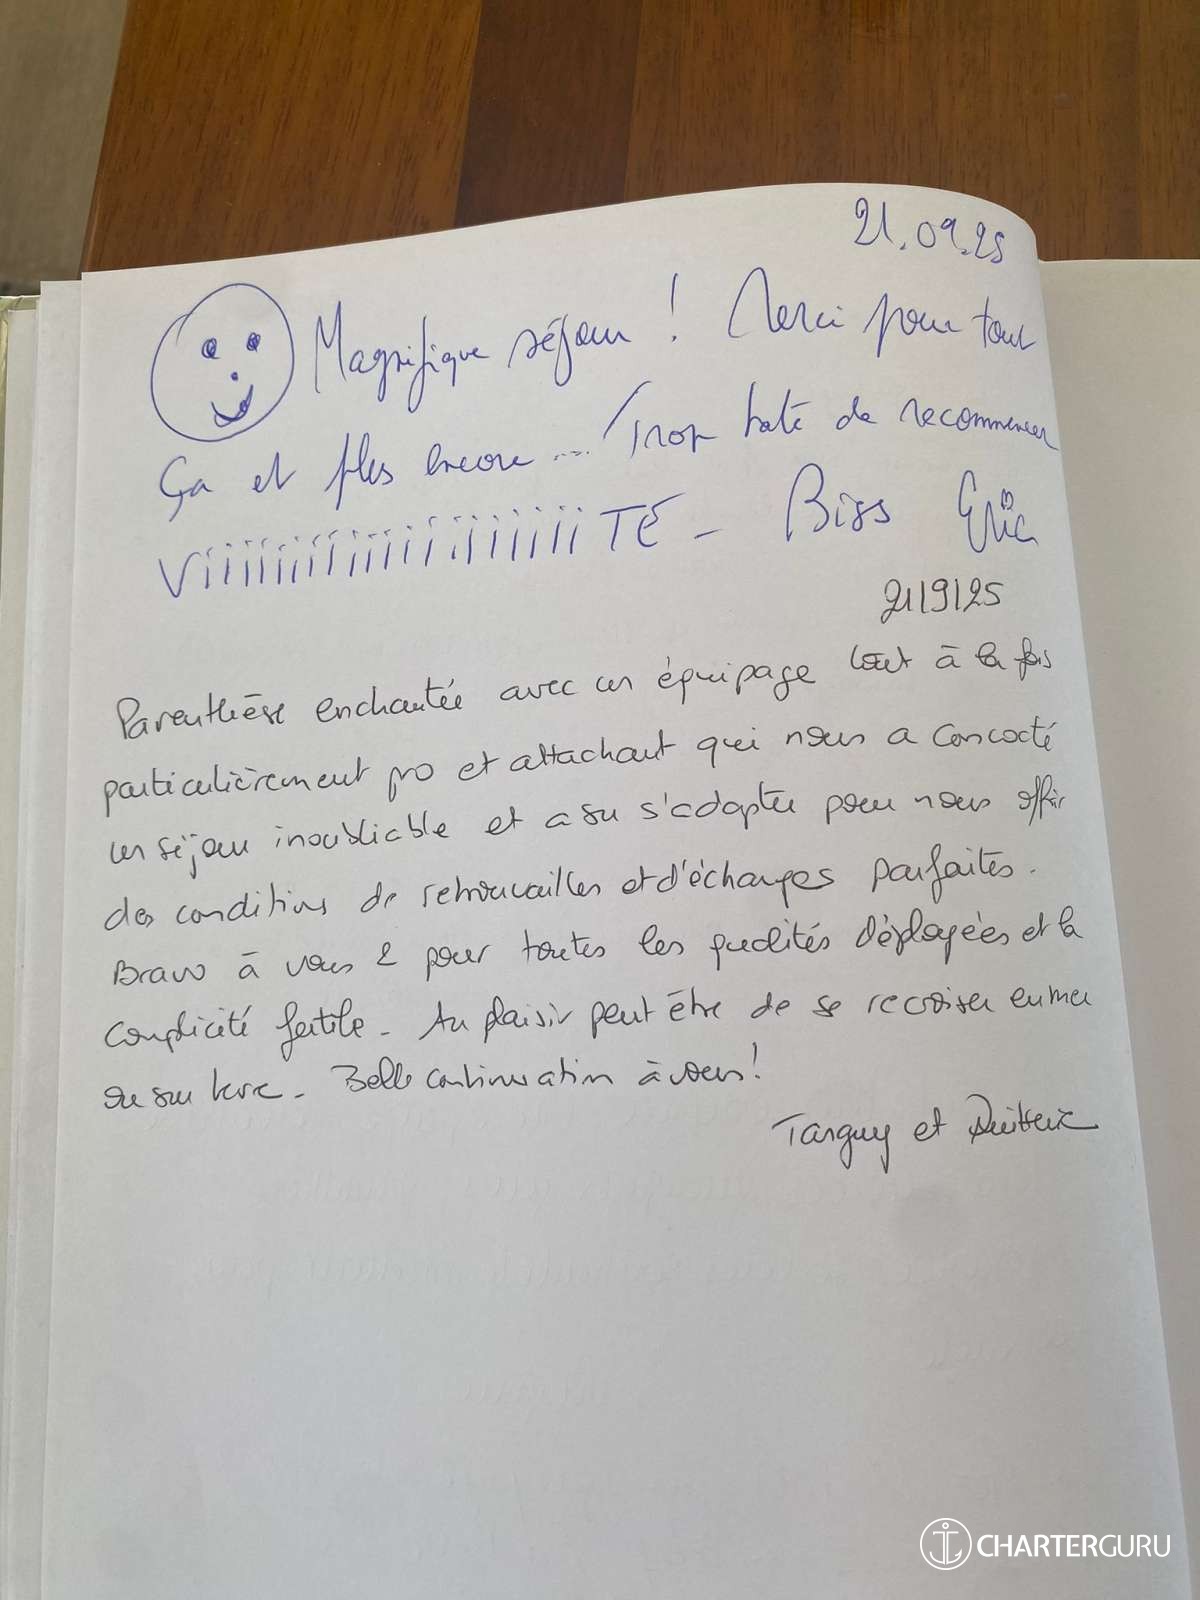 21.09.25
Magnifique séjour ! Merci pour tout
ça et plus encore ... Trop hate de recommencer
Viiiiiiiiiiiiiiiiiiii TÉ - Biss Eric
21/9/25
Parenthèse enchantée avec un équipage tout à la fois
particulièrement pro et attachant qui nous a concocté
un séjour inoubliable et a su s'adapter pour nous offrir
des conditions de retrouvailles et d'échanges parfaites.
Bravo à vous 2 pour toutes les qualités déployées et la
complicité fertile - Au plaisir peut être de se recroiser en mer
ou sur terre - Belle continuation à vous !
Tanguy et
CHARTERGURU